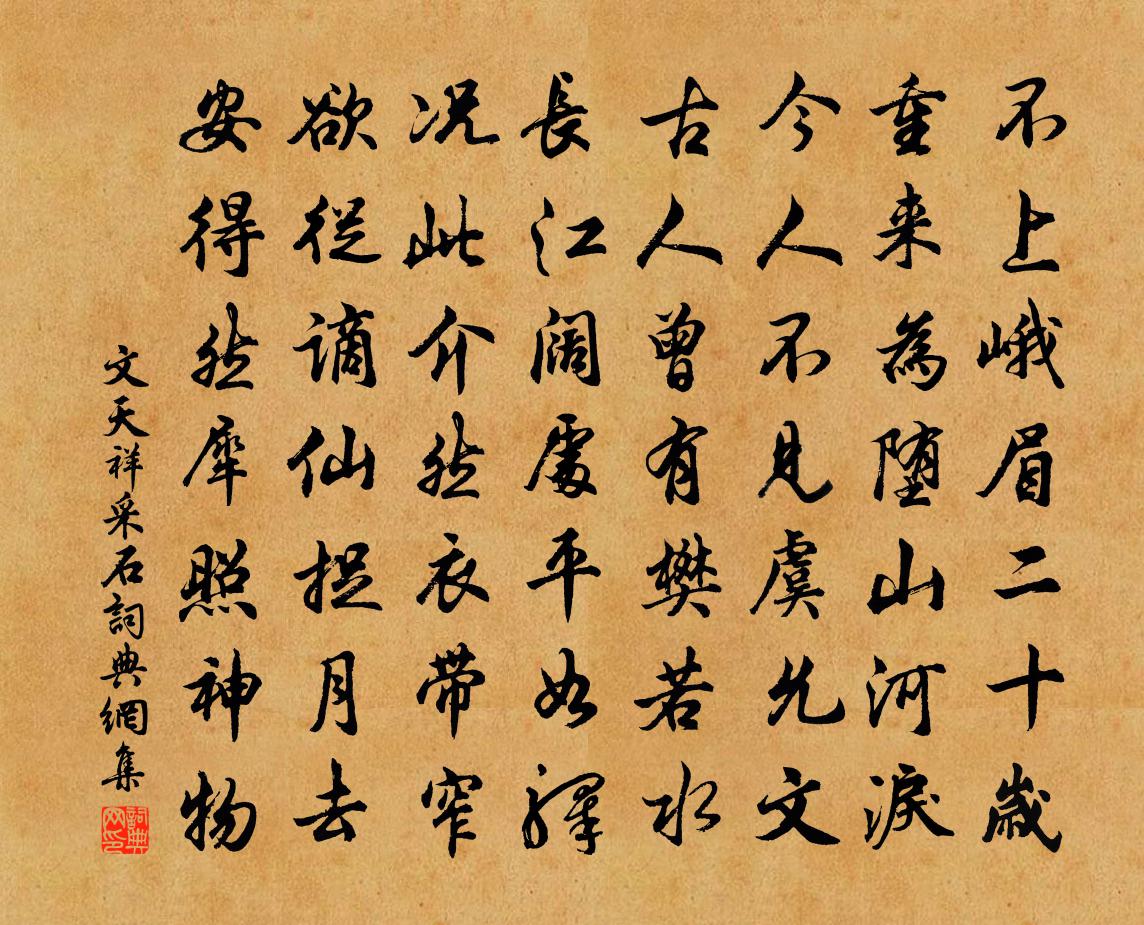 不上峨眉二十歲
重来為堕山河淚
今人不見虞允文
古人曾有樊若水
長江闊處平如驛
况此介然衣带窄
欲從謫仙捉月去
安得然犀照神物
文天祥采石詞典網集
詞典网印